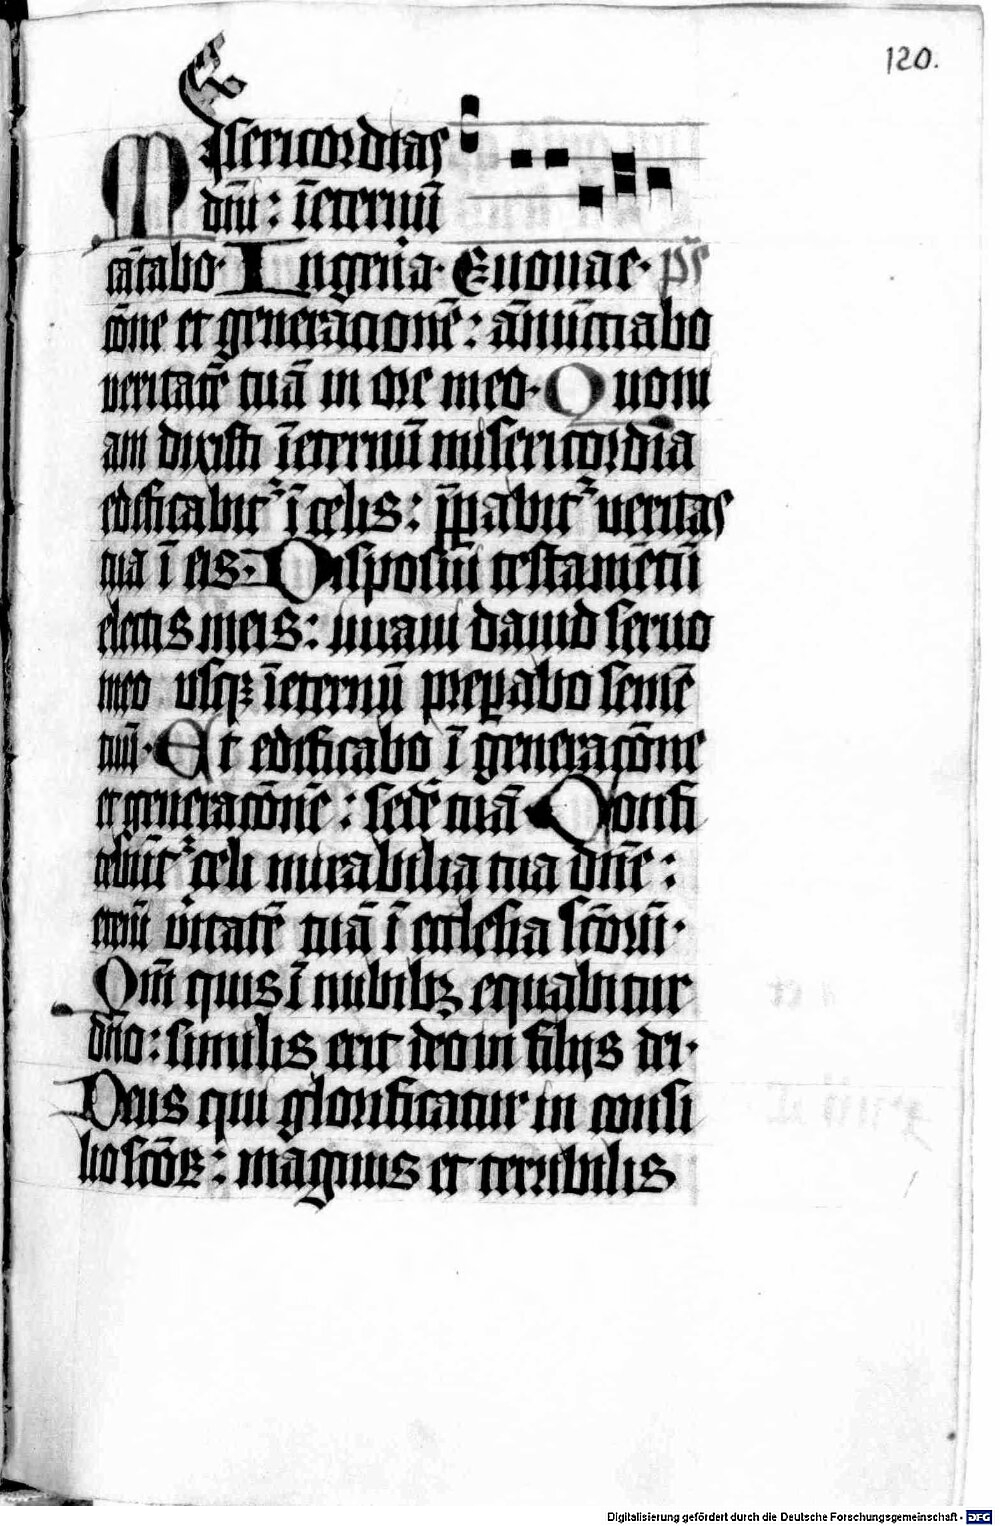 120.
Misericordias
dn̄i : īeternū
cātabo · In genera · Euouae · ps̄
cōne et generacionē : ānūnciabo
veritatē tuā in ore meo · Quoni
am dixisti īeternū misericordia
edificabit᷑ ī celis : p̄ꝑabit᷑ veritas
tua ī eis · Disposui testamētū
electis meis : iuravi david servo
meo usqꝫ īeternū preꝑabo semē
tuū · Et edificabo ī generacōne
et generacōnē : sedē tuā Confi
tebūt᷑ celi mirabilia tua dn̄e :
etenī v̄itatē tuā ī ecclesia sc̄orū ·
Qm̄ quis ī nubibꝫ equabitur
dn̄o : similis erit deo in filiis dei ·
Deus qui glorificatur in consi
lio sc̄oꝝ : magnus et terribilis
Digitalisierung gefördert durch die Deutsche Forschungsgemeinschaft - DFG